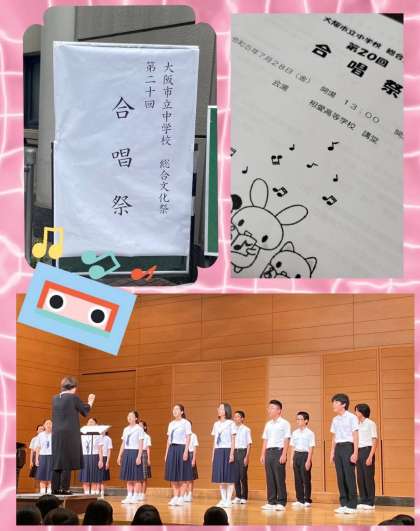 大阪市立中学校 総合文化祭
第二十回
合唱祭
大阪市立中学校 総合
第20回
合唱祭
令和5年7月28日(金) 開場 13:00
会場 相愛高等学校 講堂